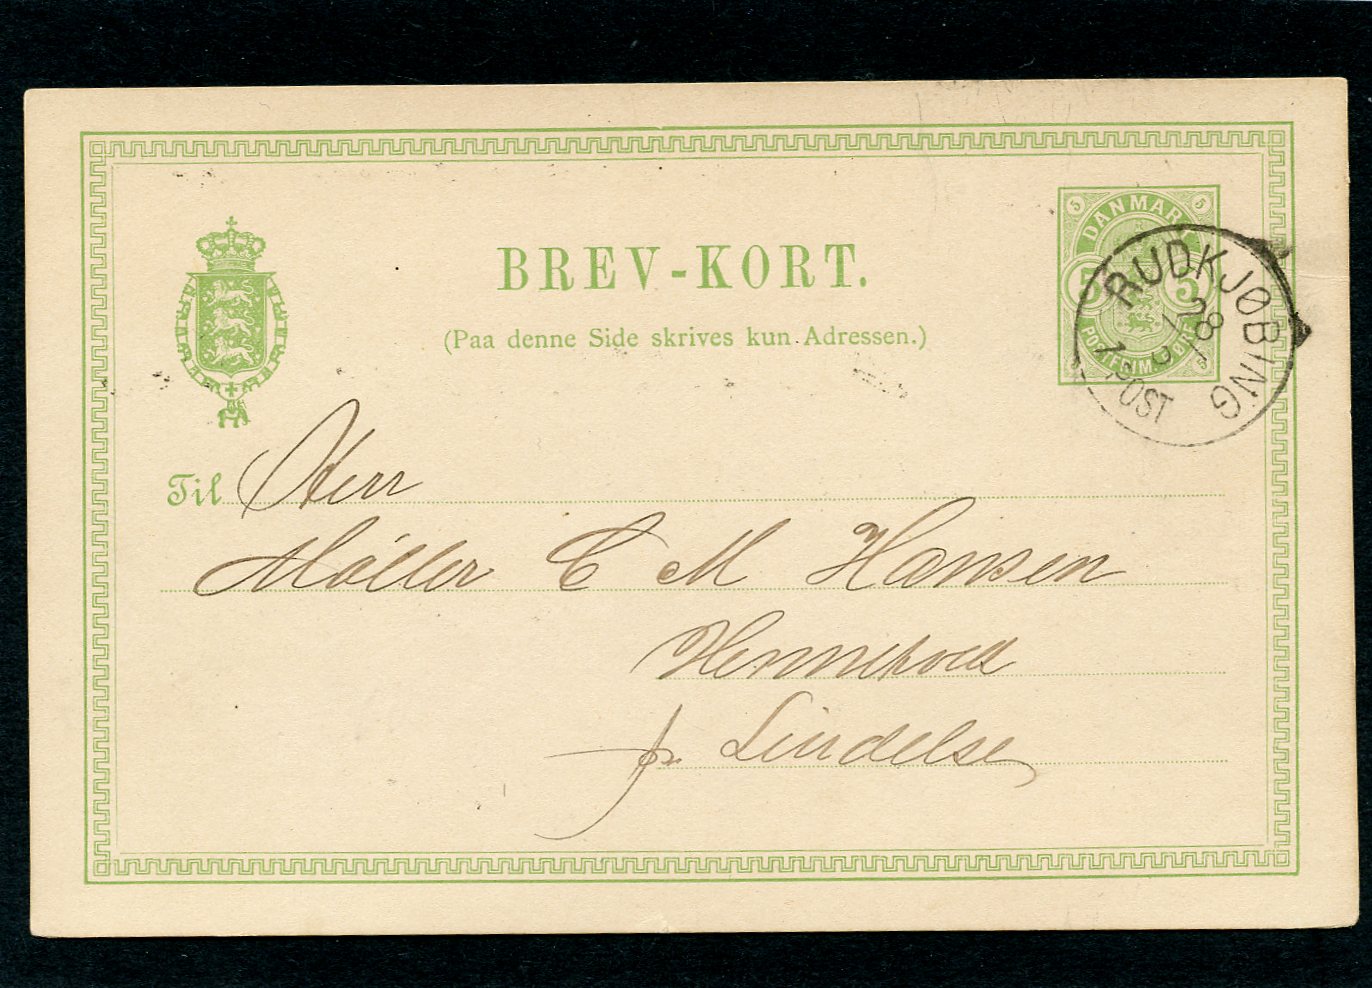 BREV-KORT.
(Paa denne Side skrives kun Adressen.)
5 DANMARK 5
5 5
POSTFRIM.
RUDKJØBING
28/8
1 POST
Til Herr
Møller C M Hansen
Hennetved
pr. Lindelse